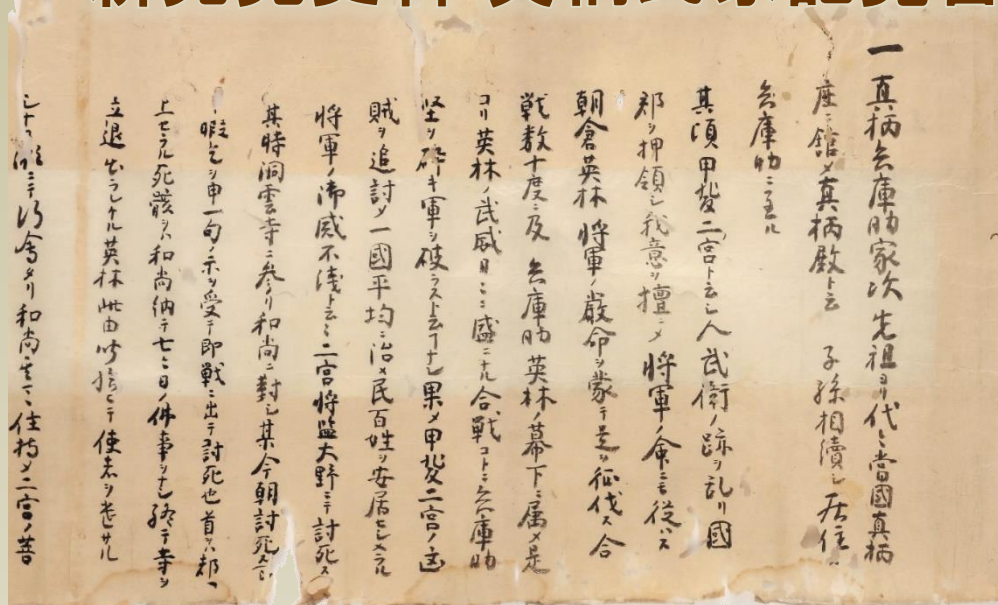 一 真柄兵庫助家次先祖ヨリ代々当國真柄
庄ニ舘〆真柄殿ト云 子孫相續シ居住
兵庫助ニ至ル
其頃甲斐二宮ト云シ人武衛ノ跡ヲ乱リ國
郡ヲ押領シ我意ヲ擅ニ〆 将軍ノ命ニモ從ハス
朝倉英林 将軍ノ嚴命ヲ蒙テ是ヲ征伐ス合
戦数十度ニ及 兵庫助英林ノ幕下ニ属〆是
ヨリ英林ノ武威日々ニ盛ニナル合戦コトニ兵庫助
堅ヲ砕キ軍ヲ破ラスト云コトナシ果〆甲斐二宮ノ凶
賊ヲ追討〆一國平均ニ治メ民百姓ヲ安居セシメタル
将軍ノ御威不浅ト云々二宮将監大野ニテ討死ス
其時洞雲寺ニ参リ和尚ニ對シ某今朝討死ス
暇乞ヲ申一句ノ示ヲ受テ即戦ニ出テ討死也首ハ都ヘ
上セラル死骸ヲハ和尚納テ七々日ノ佛事ヲナシ終テ寺ヲ
立退出ラレケル英林此由聞 使者ヲ
ニテ行會タリ和尚 住持〆二宮ノ菩